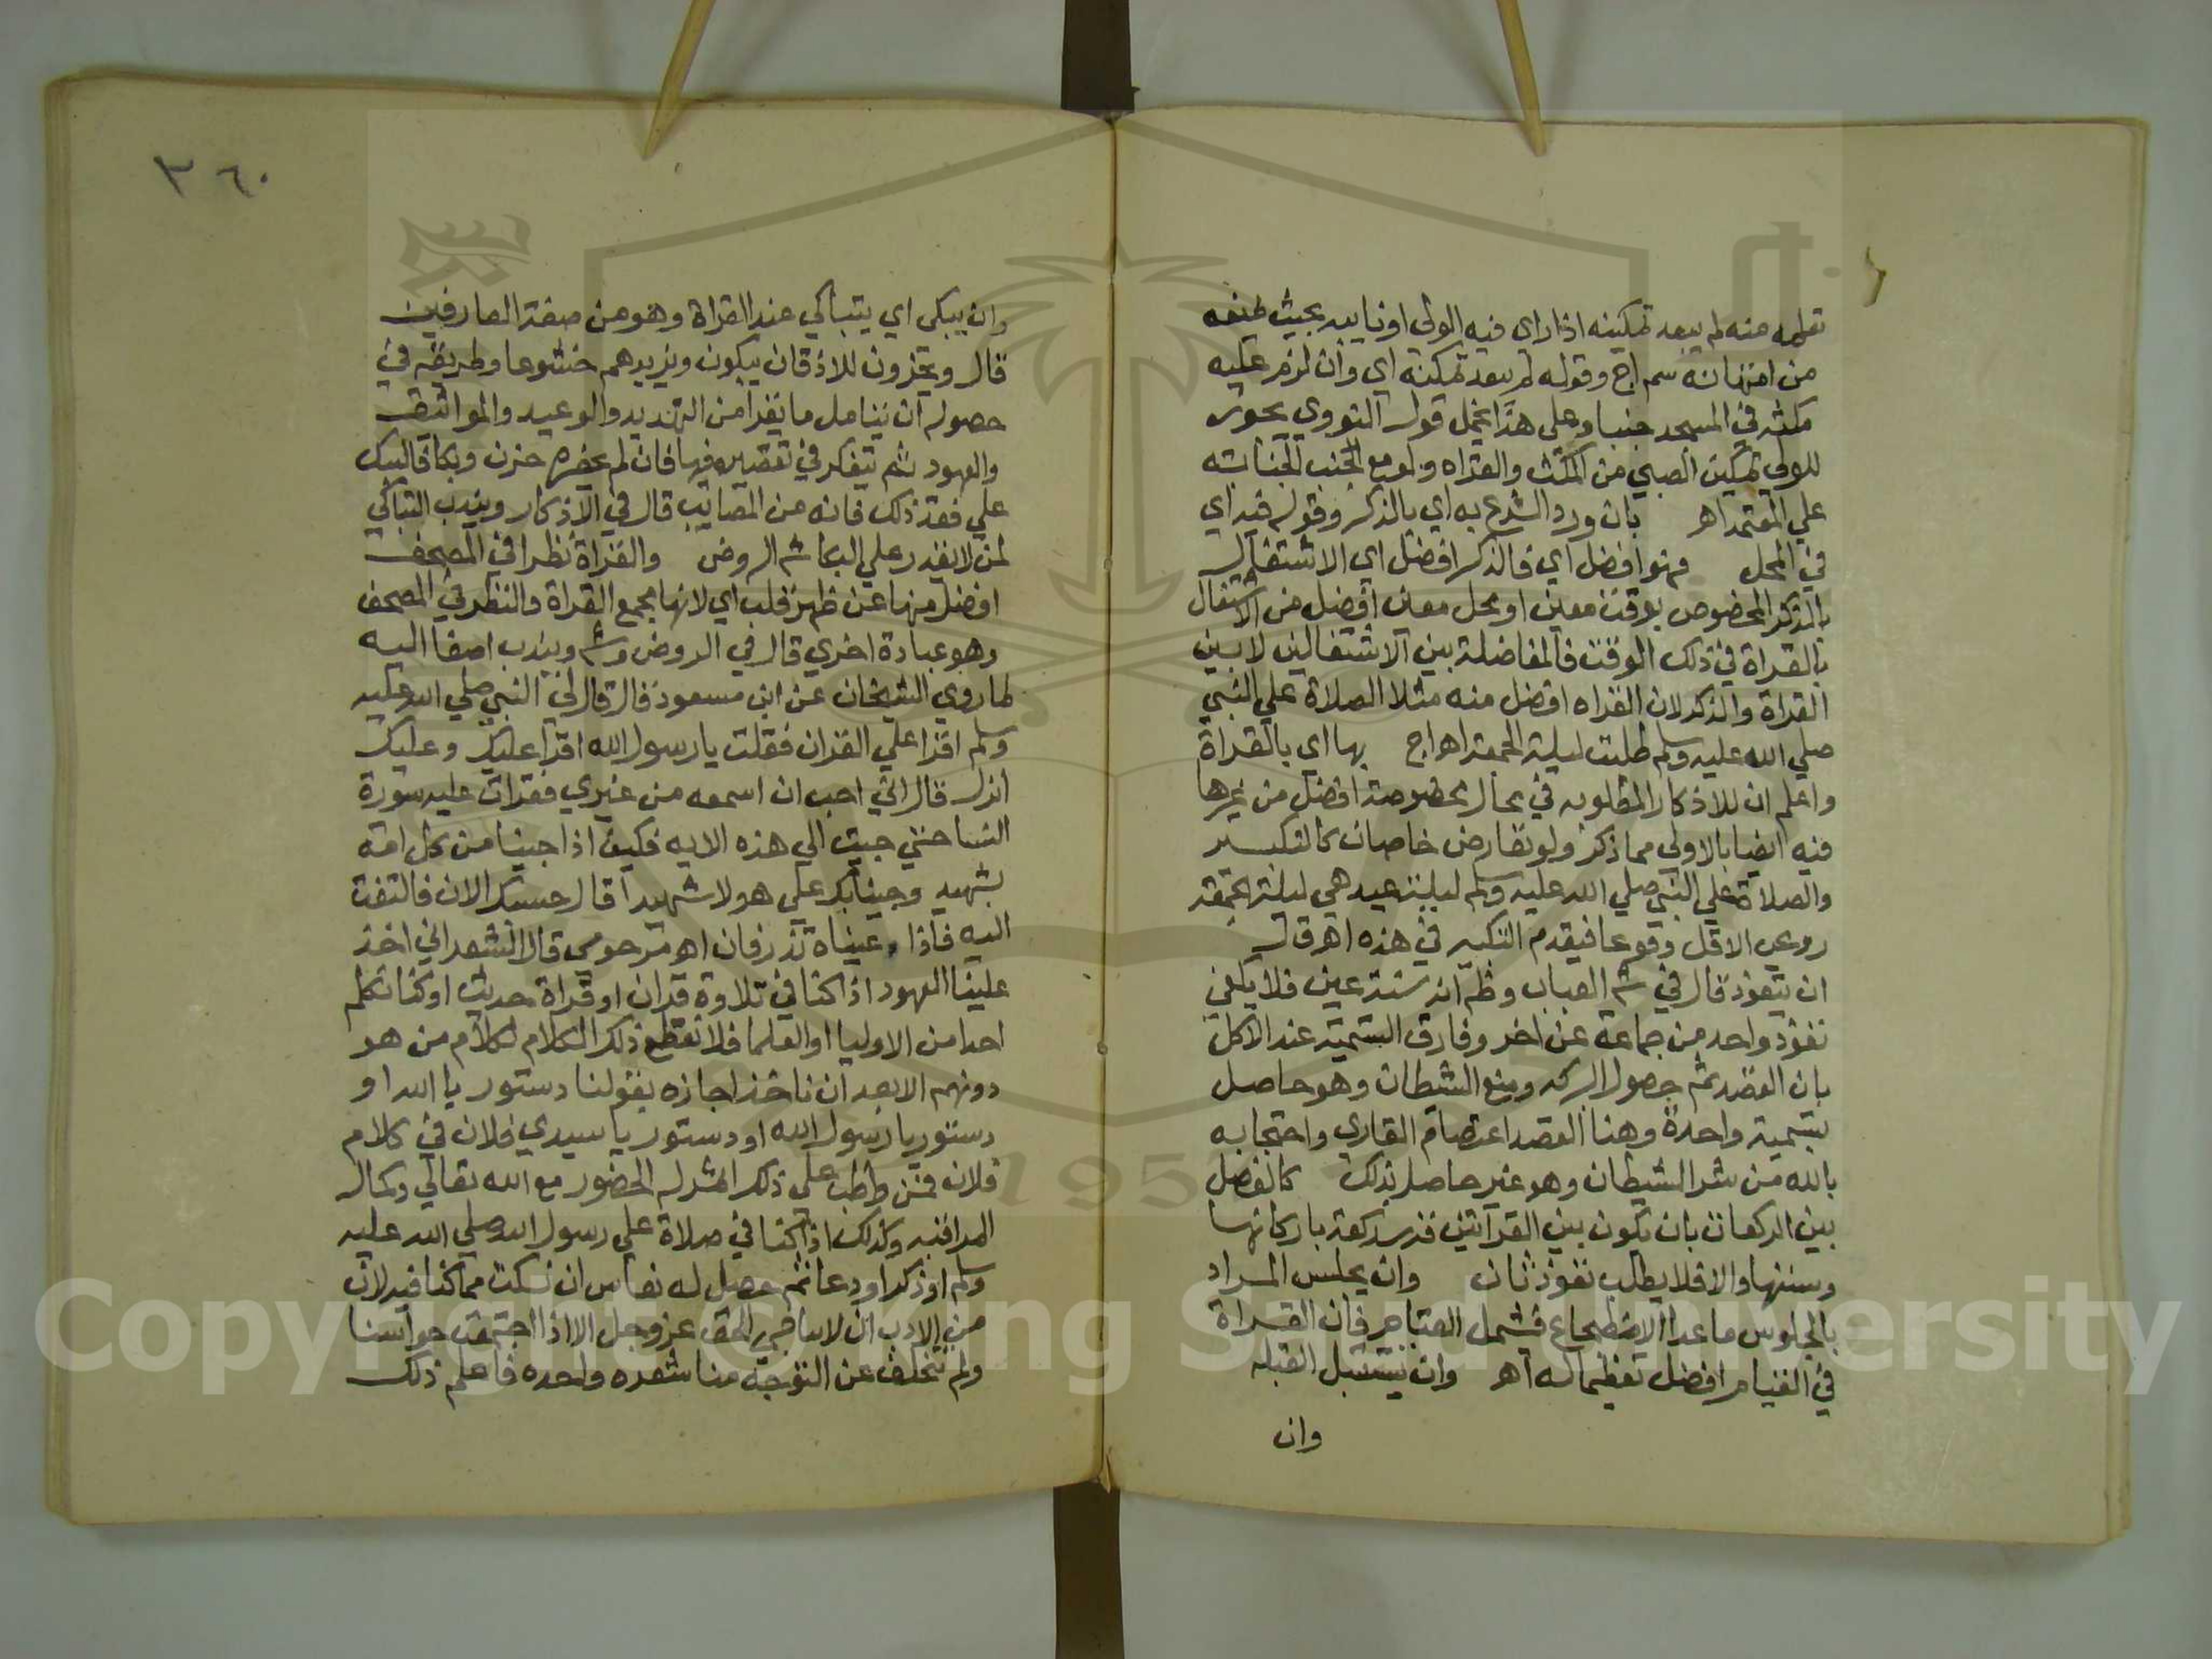 تعلمه منه لم يبعد تمكينه اذا راى فيه الولى او نايبه بحيث يمنعه
من امتهانه سم اج وقوله لم يبعد تمكينه اي وان لزم عليه
مكثه في المسجد جنبا وعلى هذا يحمل قول النووي يجوز
للولي تمكين الصبي من المكث والقراه ولو مع الجنب للجنابه
علي المعتمد اهـ بان ورد الشرع به اي بالذكر وقوله فيه اي
في المحل فهو افضل اي فالذكر افضل اي الاشتغال
بالذكر المخصوص بوقت معين او بمحل معين افضل من الاشتغال
بالقراة في ذلك الوقت فالمفاضلة بين الاشتغالين لا بين
القراة والذكر لان القراه افضل منه مثلا الصلاة علي النبي
صلي الله عليه وسلم طلبت ليلة الجمعة اهـ اج بها اي بالقراة
واعلم ان للاذكار المطلوبه في محال مخصوصة افضل من غيرها
فيه ايضا بالاولى مما ذكر ولو تعارض خاصان كالتكبير
والصلاة علي النبي صلي الله عليه وسلم ليلة عيد هي ليلة جمعة
روعي الاقل وقوعا فيقدم التكبير في هذه اهـ ق ل
ان يتعوذ قال في شم العباب وظم انه سنة عين فلا يكفي
تعوذ واحد من جماعة عن اخر وفارق التسمية عند الاكل
بان القصد ثم حصول البركه ومنع الشيطان وهو حاصل
بتسمية واحدة وهنا القصد اعتصام القاري واحتجابه
بالله من شر الشيطان وهو غير حاصل بذلك كالفصل
بين الركعات بان يكون بين القرآتين قدر ركعة باركانها
وسننها والا فلا يطلب تعوذ ثان وان يجلس المراد
بالجلوس ما عدا الاضطجاع فيشمل القيام فان القراة
في القيام افضل تعظيما له اهـ وان يستقبل القبله
وان
٣٦٠
وان يبكي اي يتباكي عند القراة وهو من صفة العارفين
قال ويخرون للاذقان يبكون ويزيدهم خشوعا وطريقه في
حصوله ان يتامل ما يقرا من التهديد والوعيد والمواثيق
والعهود ثم يتفكر في تقصيره فيها فان لم يحضره حزن وبكا فاليبك
علي فقد ذلك فانه من المصايب قال في الاذكار ويندب التباكي
لمن لا يقدر علي البكا شم الروض والقراة نظرا في المصحف
افضل منها عن ظهر قلب اي لانها تجمع القراة والنظر في المصحف
وهو عبادة اخري قال في الروض وشم ويندب اصغا اليه
لما روي الشيخان عن ابن مسعود قال قال لي النبي صلي الله عليه
وسلم اقرا علي القران فقلت يا رسول الله اقرا عليك وعليك
انزل قال اني احب ان اسمعه من غيري فقرات عليه سورة
النسا حتي جيت الي هذه الايه فكيف اذا جينا من كل امة
بشهيد وجينا بك علي هولا شهيدا قال حسبك الان فالتفت
اليه فاذا عيناه تذرفان اهـ مرحومي قال الشعراني اخذ
علينا العهود اذا كنا في تلاوة قران او قراة حديث او كنا نكلم
احدا من الاوليا او العلما فلا نقطع ذلك الكلام لكلام من هو
دونهم الا بعد ان ناخذ اجازه بقولنا دستور يا الله او
دستور يا رسول الله او دستور يا سيدي فلان في كلام
فلان فمن واظب على ذلك اثمر له الحضور مع الله تعالي وكمال
المراقبه وكذلك اذا كنا في صلاة علي رسول الله صلي الله عليه
وسلم او ذكر او دعا ثم حصل له نعاس ان نسكت مما كنا فيه لان
من الادب ان لا نناجي الحق عز وجل الا اذا اجتمعت حواسنا
ولم تتخلف عن التوجه منا شعره واحده فاعلم ذلك